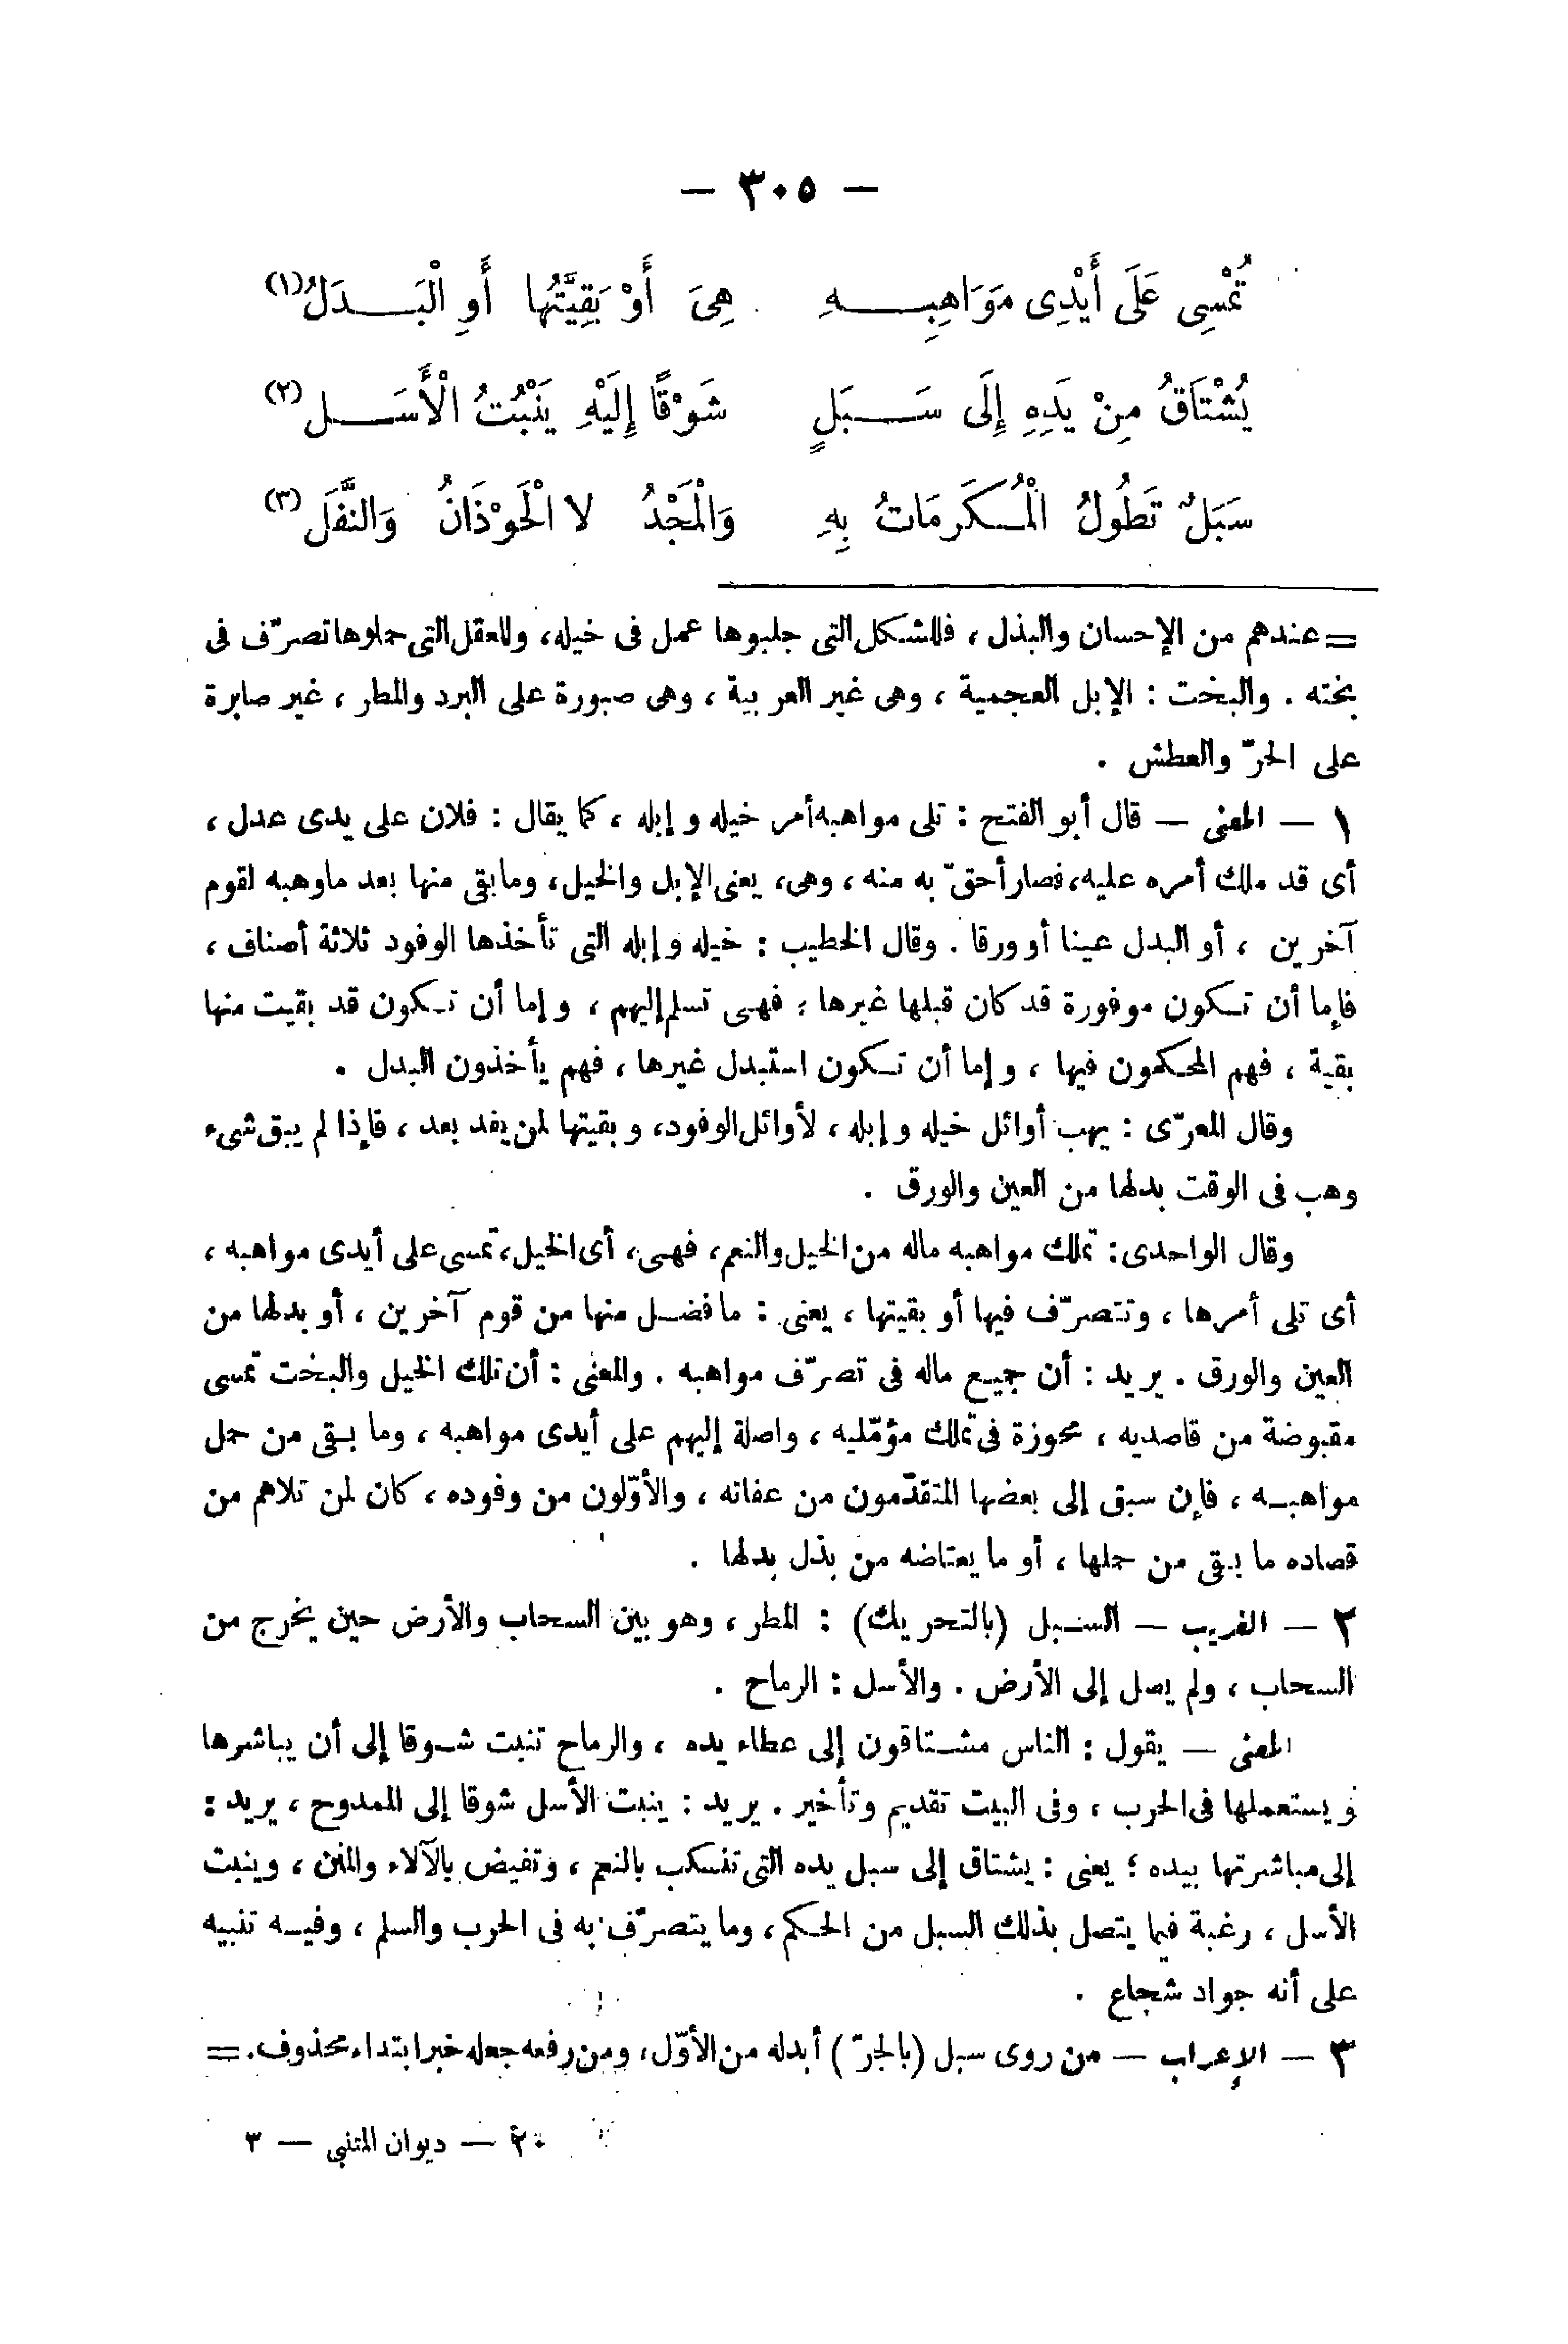 — ٣٠٥ —
تُمْسِى عَلَى أَيْدِى مَوَاهِبِــهِ هِىَ أَوْ بَقِيَّتُهَا أَوِ الْبَــدَلُ (١)
يُشْتَاقُ مِنْ يَدِهِ إِلَى سَــبَلٍ شَوْقًا إِلَيْهِ يَنْبُتُ الْأَسَــل (٢)
سَبَلٌ تَطُولُ الْمُـكَرمَاتُ بِهِ وَالْمَجْدُ لا الْحَوْذَانُ وَالنَّفَلَ (٣)
= عندهم من الإحسان والبذل ، فللشكل التى جلبوها عمل فى خيله، وللعقل التى حملوها تصرّف فى
بخته . والبخت : الإبل العجمية ، وهى غير العربية ، وهى صبورة على البرد والمطر ، غير صابرة
على الحرّ والعطش .
١ — المعنى — قال أبو الفتح : تلى مواهبه أمر خيله وإبله ، كما يقال : فلان على يدى عدل ،
أى قد ملك أمره عليه، فصار أحقّ به منه ، وهى، يعنى الإبل والخيل، وما بقى منها بعد ماوهبه لقوم
آخرين ، أو البدل عينا أو ورقا . وقال الخطيب : خيله وإبله التى تأخذها الوفود ثلاثة أصناف ،
فإما أن تـكون موفورة قد كان قبلها غيرها ؛ فهـى تسلم إليهم ، وإما أن تـكون قد بقيت منها
بقية ، فهم المحكمون فيها ، وإما أن تـكون استبدل غيرها ، فهم يأخذون البدل .
وقال المعرّى : يهب أوائل خيله وإبله ، لأوائل الوفود، وبقيتها لمن يفد بعد ، فإذا لم يبق شىء
وهب فى الوقت بدلها من العين والورق .
وقال الواحدى : تملك مواهبه ماله من الخيل والنعم، فهـى، أى الخيل، تمسى على أيدى مواهبه ،
أى تلى أمرها ، وتتصرّف فيها أو بقيتها ، يعنى : ما فضـل منها من قوم آخرين ، أو بدلها من
العين والورق . يريد : أن جميع ماله فى تصرّف مواهبه . والمعنى : أن تلك الخيل والبخت تمسى
مقبوضة من قاصديه ، محوزة فى تملك مؤمّليه ، واصلة إليهم على أيدى مواهبه ، وما بـقى من حمل
مواهبـه ، فإن سبق إلى بعضها المتقدّمون من عفاته ، والأوّلون من وفوده ، كان لمن تلاهم من
قصاده ما بـقى من حملها ، أو ما يعتاضه من بذل بدلها .
٢ — الغريب — السـبل (بالتحريك) : المطر ، وهو بين السحاب والأرض حين يخرج من
السحاب ، ولم يصل إلى الأرض . والأسل : الرماح .
المعنى — يقول : الناس مشـتاقون إلى عطاء يده ، والرماح تنبت شـوقا إلى أن يباشرها
ويستعملها فى الحرب ، وفى البيت تقديم وتأخير . يريد : ينبت الأسل شوقا إلى الممدوح ، يريد :
إلى مباشرتها بيده ؛ يعنى : يشتاق إلى سبل يده التى تنسكب بالنعم ، وتفيض بالآلاء والمنن ، وينبت
الأسل ، رغبة فيما يتصل بذلك السبل من الحـكم، وما يتصرّف به فى الحرب والسلم ، وفيـه تنبيه
على أنه جواد شجاع .
٣ — الإعراب — من روى سبل (بالجرّ) أبدله من الأوّل، ومن رفعه جعله خبر ابتداء محذوف. =
٢٠ — ديوان المتنبى — ٣